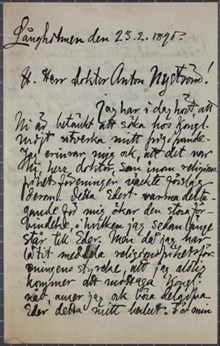 Långholmen den 23.2. 1895.
Hr. Herr doktor Anton Nyström!
Jag har i dag hört att
Ni är betänkt att söka hos Kongl.
Majt utverka mitt frigifvande.
Jag erinrar mig ock, att det var
Ni, herr doktor, som inom religions
frihetsföreningen väckte förslag
derom. Detta Edert varma delta-
gande för mig ökar den stora för-
bindelse, i hvilken jag sedan länge
står till Eder. Men då jag har
låtit meddela religionsfrihetsför-
eningens styrelse, att jag aldrig
kommer att mottaga Kongl.
nåd, anser jag ock böra delgifva
Eder detta mitt beslut. För min